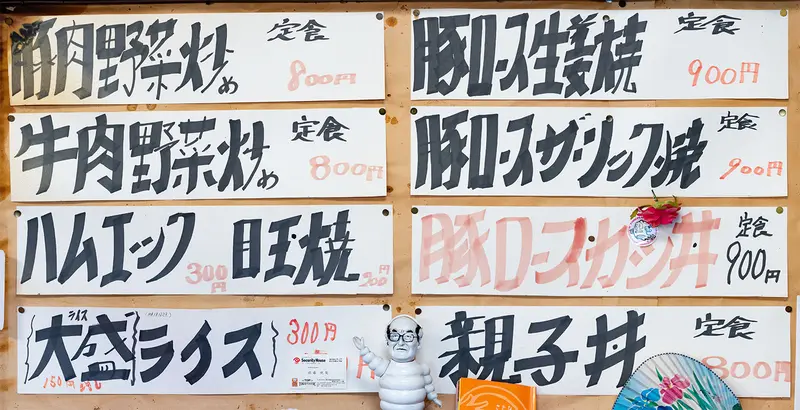 豚肉野菜炒め 定食 800円
牛肉野菜炒め 定食 800円
ハムエッグ 300円 目玉焼 200円
大盛 ライス 150円
ライス 300円
Security House
豚ロース生姜焼 定食 900円
豚ロースガーリック焼 定食 900円
豚ロースカツ丼 定食 900円
親子丼 定食 800円